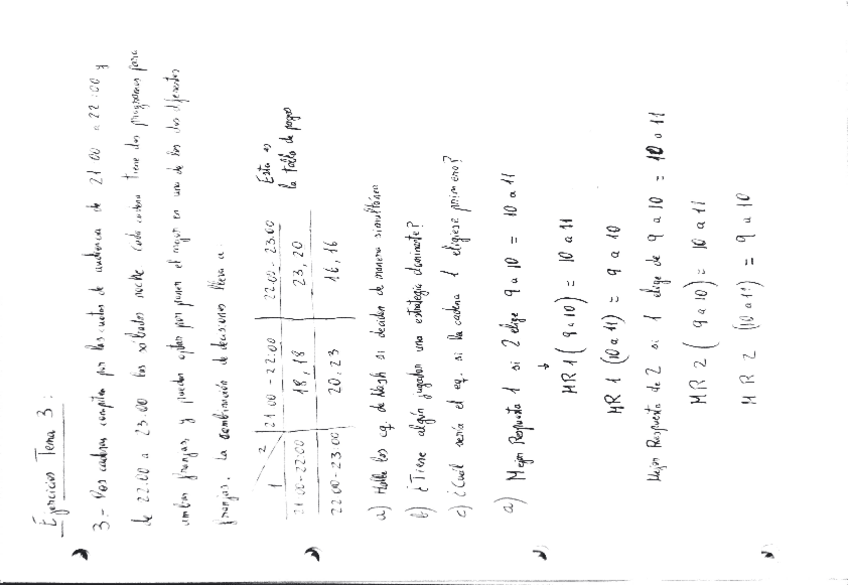 Ejercicios Tema 3:
3.- Dos cadenas compiten por las cuotas de audiencia de 21 00 a 22:00 y
de 22.00 a 23.00 los sábados noche Cada cadena tiene dos programas para
ambas franjas, y pueden optar por poner el mejor en una de las dos diferentes
franjas. La combinación de decisiones lleva a:
1 2 21 00 - 22:00 22:00 - 23.00 Esta es
21 00-22:00 18, 18 23, 20 la tabla de pagos
22 00-23 00 20, 23 16, 16
a) Halle los eq. de Nash si deciden de manera simultánea
b) ¿Tiene algún jugador una estrategia dominante?
c) ¿Cuál sería el eq. si la cadena 1 eligiese primero?
a) Mejor Respuesta 1 si 2 elige 9 a 10 = 10 a 11
MR 1 (9 a 10) = 10 a 11
MR 1 (10 a 11) = 9 a 10
Mejor Respuesta de 2 si 1 elige de 9 a 10 = 10 a 11
MR 2 (9 a 10) = 10 a 11
MR 2 (10 a 11) = 9 a 10